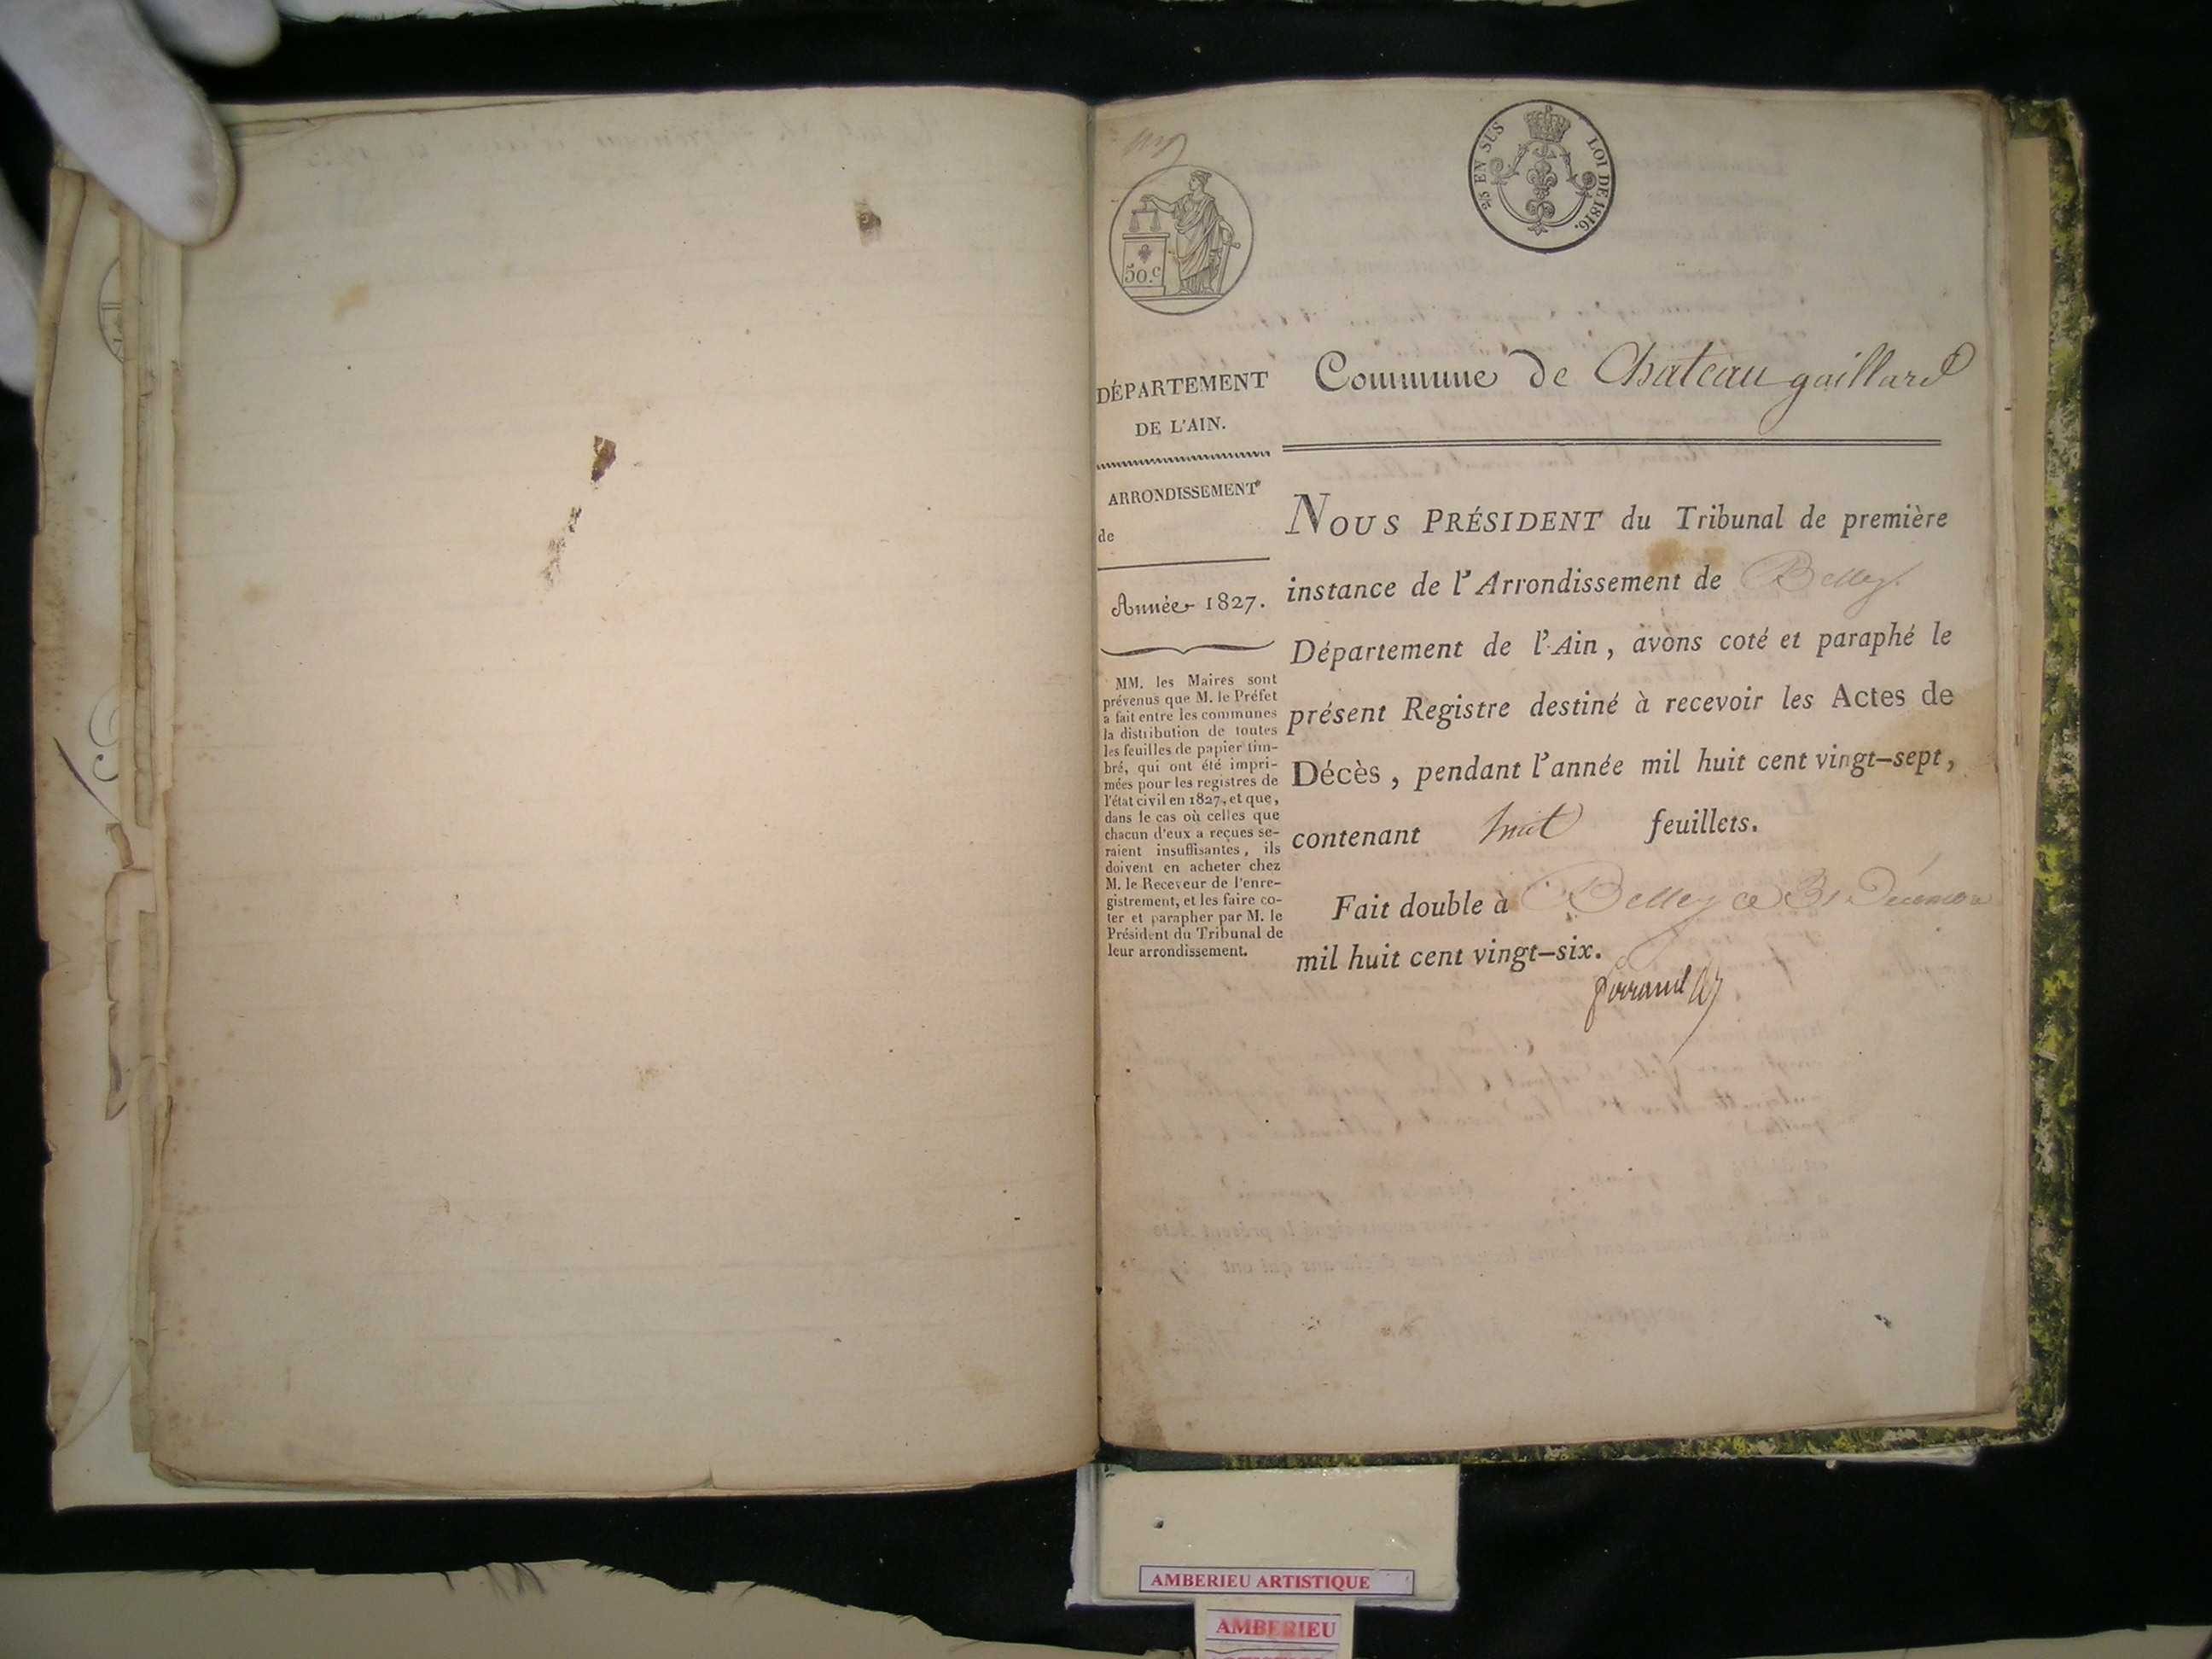 50.c
2/5 EN SUS
LOI DE 1816.
DÉPARTEMENT
DE L'AIN.
ARRONDISSEMENT
de
Année 1827.
MM. les Maires sont
prévenus que M. le Préfet
a fait entre les communes
la distribution de toutes
les feuilles de papier tim-
bré, qui ont été impri-
mées pour les registres de
l'état civil en 1827, et que,
dans le cas où celles que
chacun d'eux a reçues se-
raient insuffisantes, ils
doivent en acheter chez
M. le Receveur de l'enre-
gistrement, et les faire co-
ter et parapher par M. le
Président du Tribunal de
leur arrondissement.
Commune de Chateau gaillard
NOUS PRÉSIDENT du Tribunal de première
instance de l'Arrondissement de Belley.
Département de l'Ain, avons coté et paraphé le
présent Registre destiné à recevoir les Actes de
Décès, pendant l'année mil huit cent vingt-sept,
contenant huit feuillets.
Fait double à Belley ce 31 Décembre
mil huit cent vingt-six.
AMBERIEU ARTISTIQUE
AMBERIEU